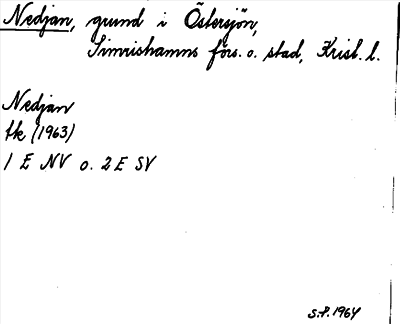 Nedjan, grund i Östersjön,
Simrishamns förs. o. stad, Krist. l.
Nedjan
tk (1963)
1 E NV o. 2 E SV
S.P. 1964